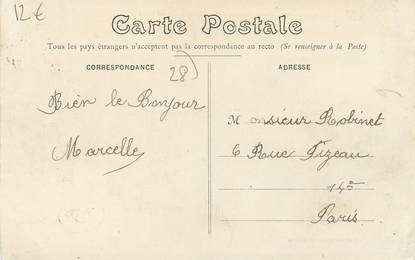 12 €
Carte Postale
Tous les pays étrangers n'acceptent pas la correspondance au recto (Se renseigner à la Poste)
CORRESPONDANCE
28
Bien le Bonjour
Marcelle
ADRESSE
Monsieur Robinet
6 Rue Fizeau
14e
Paris